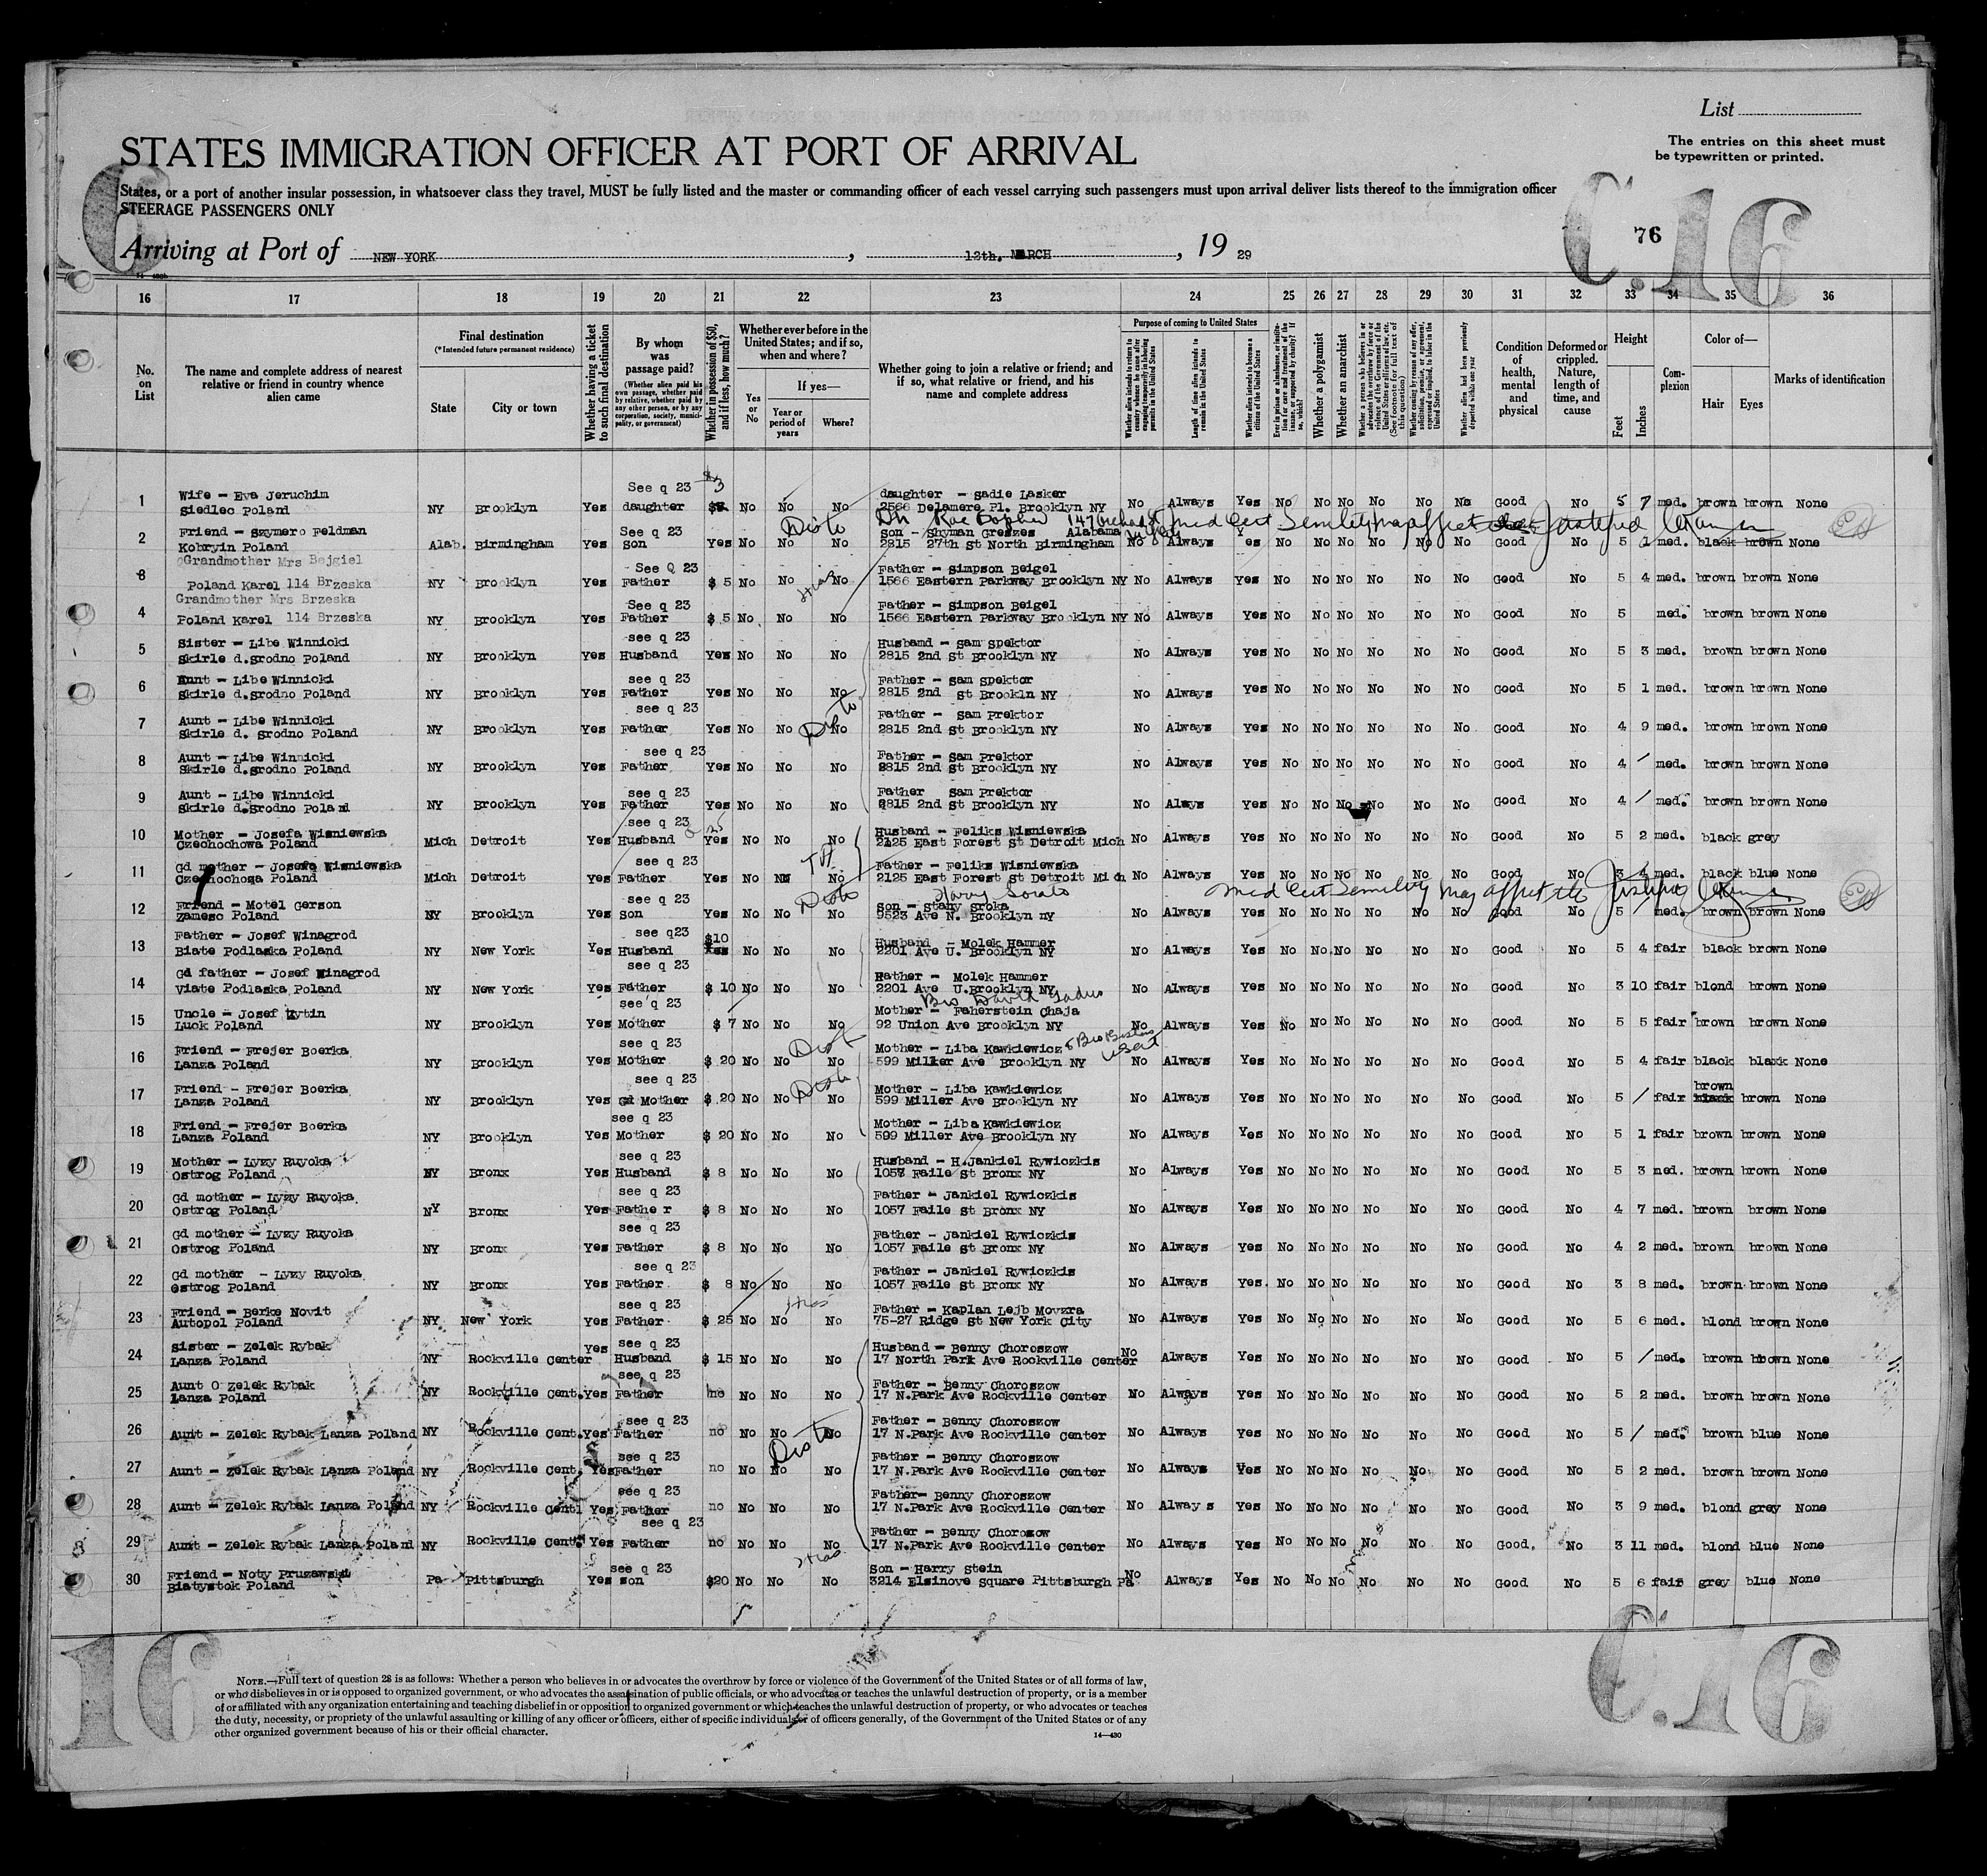 List
The entries on this sheet must
be typewritten or printed.
STATES IMMIGRATION OFFICER AT PORT OF ARRIVAL
States, or a port of another insular possession, in whatsoever class they travel, MUST be fully listed and the master or commanding officer of each vessel carrying such passengers must upon arrival deliver lists thereof to the immigration officer
STEERAGE PASSENGERS ONLY
C.16
76
Arriving at Port of NEW YORK, 12th. MARCH, 19 29
16 17 18 19 20 21 22 23 24 25 26 27 28 29 30 31 32 33 34 35 36
No. on List
The name and complete address of nearest relative or friend in country whence alien came
Final destination
(*Intended future permanent residence)
State
City or town
Whether having a ticket to such final destination
By whom was passage paid?
(Whether alien paid his own passage, whether paid by relative, whether paid by any other person, or by any corporation, society, municipality, or government)
Whether in possession of $50, and if less, how much?
Whether ever before in the United States; and if so, when and where?
Yes or No
If yes—
Year or period of years
Where?
Whether going to join a relative or friend; and if so, what relative or friend, and his name and complete address
Purpose of coming to United States
Length of time alien intends to remain in the United States
Whether alien intends to become a citizen of the United States
Whether a polygamist
Whether an anarchist
Condition of health, mental and physical
Deformed or crippled. Nature, length of time, and cause
Height
Feet
Inches
Complexion
Color of—
Hair
Eyes
Marks of identification
1 Wife - Eva Jeruchim Siedlec Poland NY Brooklyn Yes See q 23 daughter No No No daughter - Sadie Lasker 2566 Delamere Pl. Brooklyn NY No Always Yes No No No No No No Good No 5 7 med. brown brown None
2 Friend - Szymero Feldman Kobryin Poland Alab. Birmingham Yes See q 23 son Yes No No No Son - Shyman Greszes Alabama 2815 27th st North Birmingham No Always Yes No No No No No No Good No 5 1 med. black brown None
3 Grandmother Mrs Bejgiel Poland Karel 114 Brzeska NY Brooklyn Yes See Q 23 Father $ 5 No No No Father - Simpson Beigel 1566 Eastern Parkway Brooklyn NY No Always Yes No No No No No No Good No 5 4 med. brown brown None
4 Grandmother Mrs Brzeska Poland Karel 114 Brzeska NY Brooklyn Yes See q 23 Father $ 5 No No No Father - Simpson Beigel 1566 Eastern Parkway Brooklyn NY No Always Yes No No No No No No Good No 5 med. brown brown None
5 Sister - Libe Winnicki Skirle d.grodno Poland NY Brooklyn Yes see q 23 Husband Yes No No No Husband - Sam Spektor 2815 2nd St Brooklyn NY No Always Yes No No No No No No Good No 5 3 med. brown brown None
6 Aunt - Libe Winnicki Skirle d.grodno Poland NY Brooklyn Yes see q 23 Father Yes No No No Father - Sam Spektor 2815 2nd St Brookln NY No Always Yes No No No No No No Good No 5 1 med. brown brown None
7 Aunt - Libe Winnicki Skirle d. grodno Poland NY Brooklyn Yes see q 23 Father Yes No No No Father - Sam Prektor 2815 2nd St Brooklyn NY No Always Yes No No No No No No Good No 4 9 med. brown brown None
8 Aunt - Libe Winnicki Skirle d.grodno Poland NY Brooklyn Yes see q 23 Father Yes No No No Father - Sam Prektor 2815 2nd St Brooklyn NY No Always Yes No No No No No No Good No 4 / med. brown brown None
9 Aunt - Libe Winnicki Skirle d.grodno Poland NY Brooklyn Yes see q 23 Father Yes No No No Father Sam Prektor 2815 2nd St Brooklyn NY No Always Yes No No No No No No Good No 4 / med. brown brown None
10 Mother - Josefa Wisniewska Czechochowa Poland Mich Detroit Yes see q 23 Husband Yes No No No Husband - Feliks Wisniewska 2125 East Forest St Detroit Mich No Always Yes No No No No No No Good No 5 2 med. black grey
11 Gd mother - Josefa Wisniewska Czechochoza Poland Mich Detroit Yes see q 23 Father Yes No No No Father - Feliks Wisniewska 2125 East Forest St Detroit Mich No Always Yes No No No No No No Good No 3 4 med. black blue None
12 Friend - Motel Gerson Zamesc Poland NY Brooklyn Yes see q 23 son Yes No No No Son - Stany Sroka 9523 Ave N. Brooklyn ny No Always Yes No No No No No No Good No 5 / med. brown brown None
13 Father - Josef Winagrod Biate Podlaska Poland NY New York Yes see q23 Husband $10 No No No Husband - Molek Hammer 2201 Ave U. Brooklyn NY No Always Yes No No No No No No Good No 5 4 fair black brown None
14 Gd father - Josef Winagrod Viate Podlaska Poland NY New York Yes see q 23 Father $ 10 No No No Father - Molek Hammer 2201 Ave U.Brooklyn NY No Always Yes No No No No No No Good No 3 10 fair blond brown None
15 Uncle - Josef Zytin Luck Poland NY Brooklyn Yes see q 23 Mother $ 7 No No No Mother - Faherstein Chaja 92 Union Ave Brooklyn NY No Always Yes No No No No No No Good No 5 5 fair brown brown None
16 Friend - Frejer Boerka Lanza Poland NY Brooklyn Yes see q 23 Mother $ 20 No No No Mother - Liba Kawkiewicz 599 Miller Ave Brooklyn NY No Always Yes No No No No No No Good No 5 4 fair black black None
17 Friend - Frejer Boerka Lanza Poland NY Brooklyn Yes see q 23 Gd Mother $ 20 No No No Mother - Liba Kawkiewicz 599 Miller Ave Brooklyn NY No Always Yes No No No No No No Good No 5 / fair brown brown None
18 Friend - Frejer Boerka Lanza Poland NY Brooklyn Yes see q 23 Mother $ 20 No No No Mother - Liba Kawkiewicz 599 Miller Ave Brooklyn NY No Always Yes No No No No No No Good No 5 1 fair brown brown None
19 Mother - Lyzy Ruyoka Ostrog Poland NY Bronx Yes see q 23 Husband $ 8 No No No Husband - H.Jankiel Rywiczkis 1057 Faile St Bronx NY No Always Yes No No No No No No Good No 5 3 med. brown brown None
20 Gd mother - Lyzy Ruyoka Ostrog Poland NY Bronx Yes see q 23 Father $ 8 No No No Father - Jankiel Rywiczkis 1057 Faile St Bronx NY No Always Yes No No No No No No Good No 4 7 med. brown brown None
21 Gd mother - Lyzy Ruyoka Ostrog Poland NY Bronx Yes see q 23 Father $ 8 No No No Father - Jankiel Rywiczkis 1057 Faile St Bronx NY No Always Yes No No No No No No Good No 4 2 med. brown brown None
22 Gd mother - Lyzy Ruyoka Ostrog Poland NY Bronx Yes see q 23 Father $ 8 No No No Father - Jankiel Rywiczkis 1057 Faile St Bronx NY No Always Yes. No No No No No No Good No 3 8 med. brown brown None
23 Friend - Berke Novit Autopol Poland NY New York Yes see q 23 Father $ 25 No No No Father - Kaplan Lejb Movzra 75-27 Ridge St New York City No Always Yes No No No No No No Good No 5 6 med. blond brown None
24 Sister - Zelek Rybak Lanza Poland NY Rockville Center Yes see q 23 Husband $ 15 No No No Husband - Benny Choroszow 17 North Park Ave Rockville Center No Always Yes No No No No No No Good No 5 / med. brown brown None
25 Aunt O Zelek Rybak Lanza Poland NY Rockville Cent. Yes see q 23 Father no No No No Father - Benny Choroszow 17 N.Park Ave Rockville Center No Always Yes No No No No No No Good No 5 2 med. brown brown None
26 Aunt - Zelek Rybak Lanza Poland NY Rockville Cent. Yes see q 23 Father no No No No Father - Benny Choroszow 17 N.Park Ave Rockville Center No Always Yes No No No No No No Good No 5 / med. brown blue None
27 Aunt - Zelek Rybak Lanza Poland NY Rockville Cent. Yes see q 23 Father no No No No Father - Benny Choroszow 17 N.Park Ave Rockville Center No Always Yes No No No No No No Good No 5 2 med. brown brown None
28 Aunt - Zelek Rybak Lanza Poland NY Rockville Centl Yes see q 23 Father no No No No Father- Benny Choroszow 17 N.Park Ave Rockville Center No Always Yes No No No No No No Good No 3 9 med. blond grey None
29 Aunt - Zelek Rybak Lanza Poland NY Rockville Cent. Yes see q 23 Father no No No No Father - Benny Chorozow 17 N.Park Ave Rockville Center No Always Yes No No No No No No Good. No 3 11 med. blond blue None
30 Friend - Noty Pruzawski Biatystok Poland Pa Pittsburgh Yes see q 23 son $20 No No No Son - Harry Stein 3214 Elsinove Square Pittsburgh Pa No Always Yes No No No No No No Good No 5 6 fair grey blue None
16
C.16
NOTE.—Full text of question 28 is as follows: Whether a person who believes in or advocates the overthrow by force or violence of the Government of the United States or of all forms of law,
or who disbelieves in or is opposed to organized government, or who advocates the assassination of public officials, or who advocates or teaches the unlawful destruction of property, or is a member
of or affiliated with any organization entertaining and teaching disbelief in or opposition to organized government or which teaches the unlawful destruction of property, or who advocates or teaches
the duty, necessity, or propriety of the unlawful assaulting or killing of any officer or officers, either of specific individuals or of officers generally, of the Government of the United States or of any
other organized government because of his or their official character.
14—430